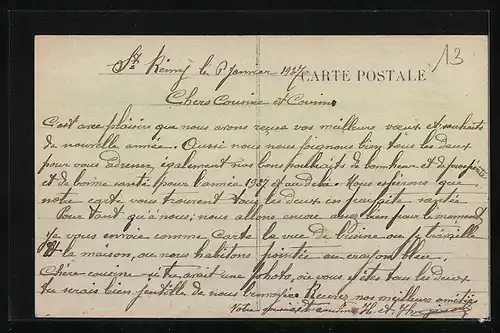 13
St Rémy le 6 Janvier 1937
CARTE POSTALE
Chers Cousine et Cousin
C'est avec plaisirs que nous avons reçue vos meilleurs vœux et souhaits
de nouvelle année. Aussi nous nous joignons bien tous les deux
pour vous adresser également nos bons souhaits de bonheur et de prospérité
et de bonne santé pour l'année 1937 et au delà. Nous espérons que
notre carte vous trouvent tous les deux en parfaite santée
Pour tant qu'à nous; nous allons encore assez bien pour le moment
Je vous envoie comme Carte la vue de
la maison, ou nous habitons pointée au crayon bleu.
Chère cousine si tu avait une photo, ou vous y êtes tous les deux
tu serais bien gentille de nous l'envoyée. Recevez nos meilleurs amitiés
H. et